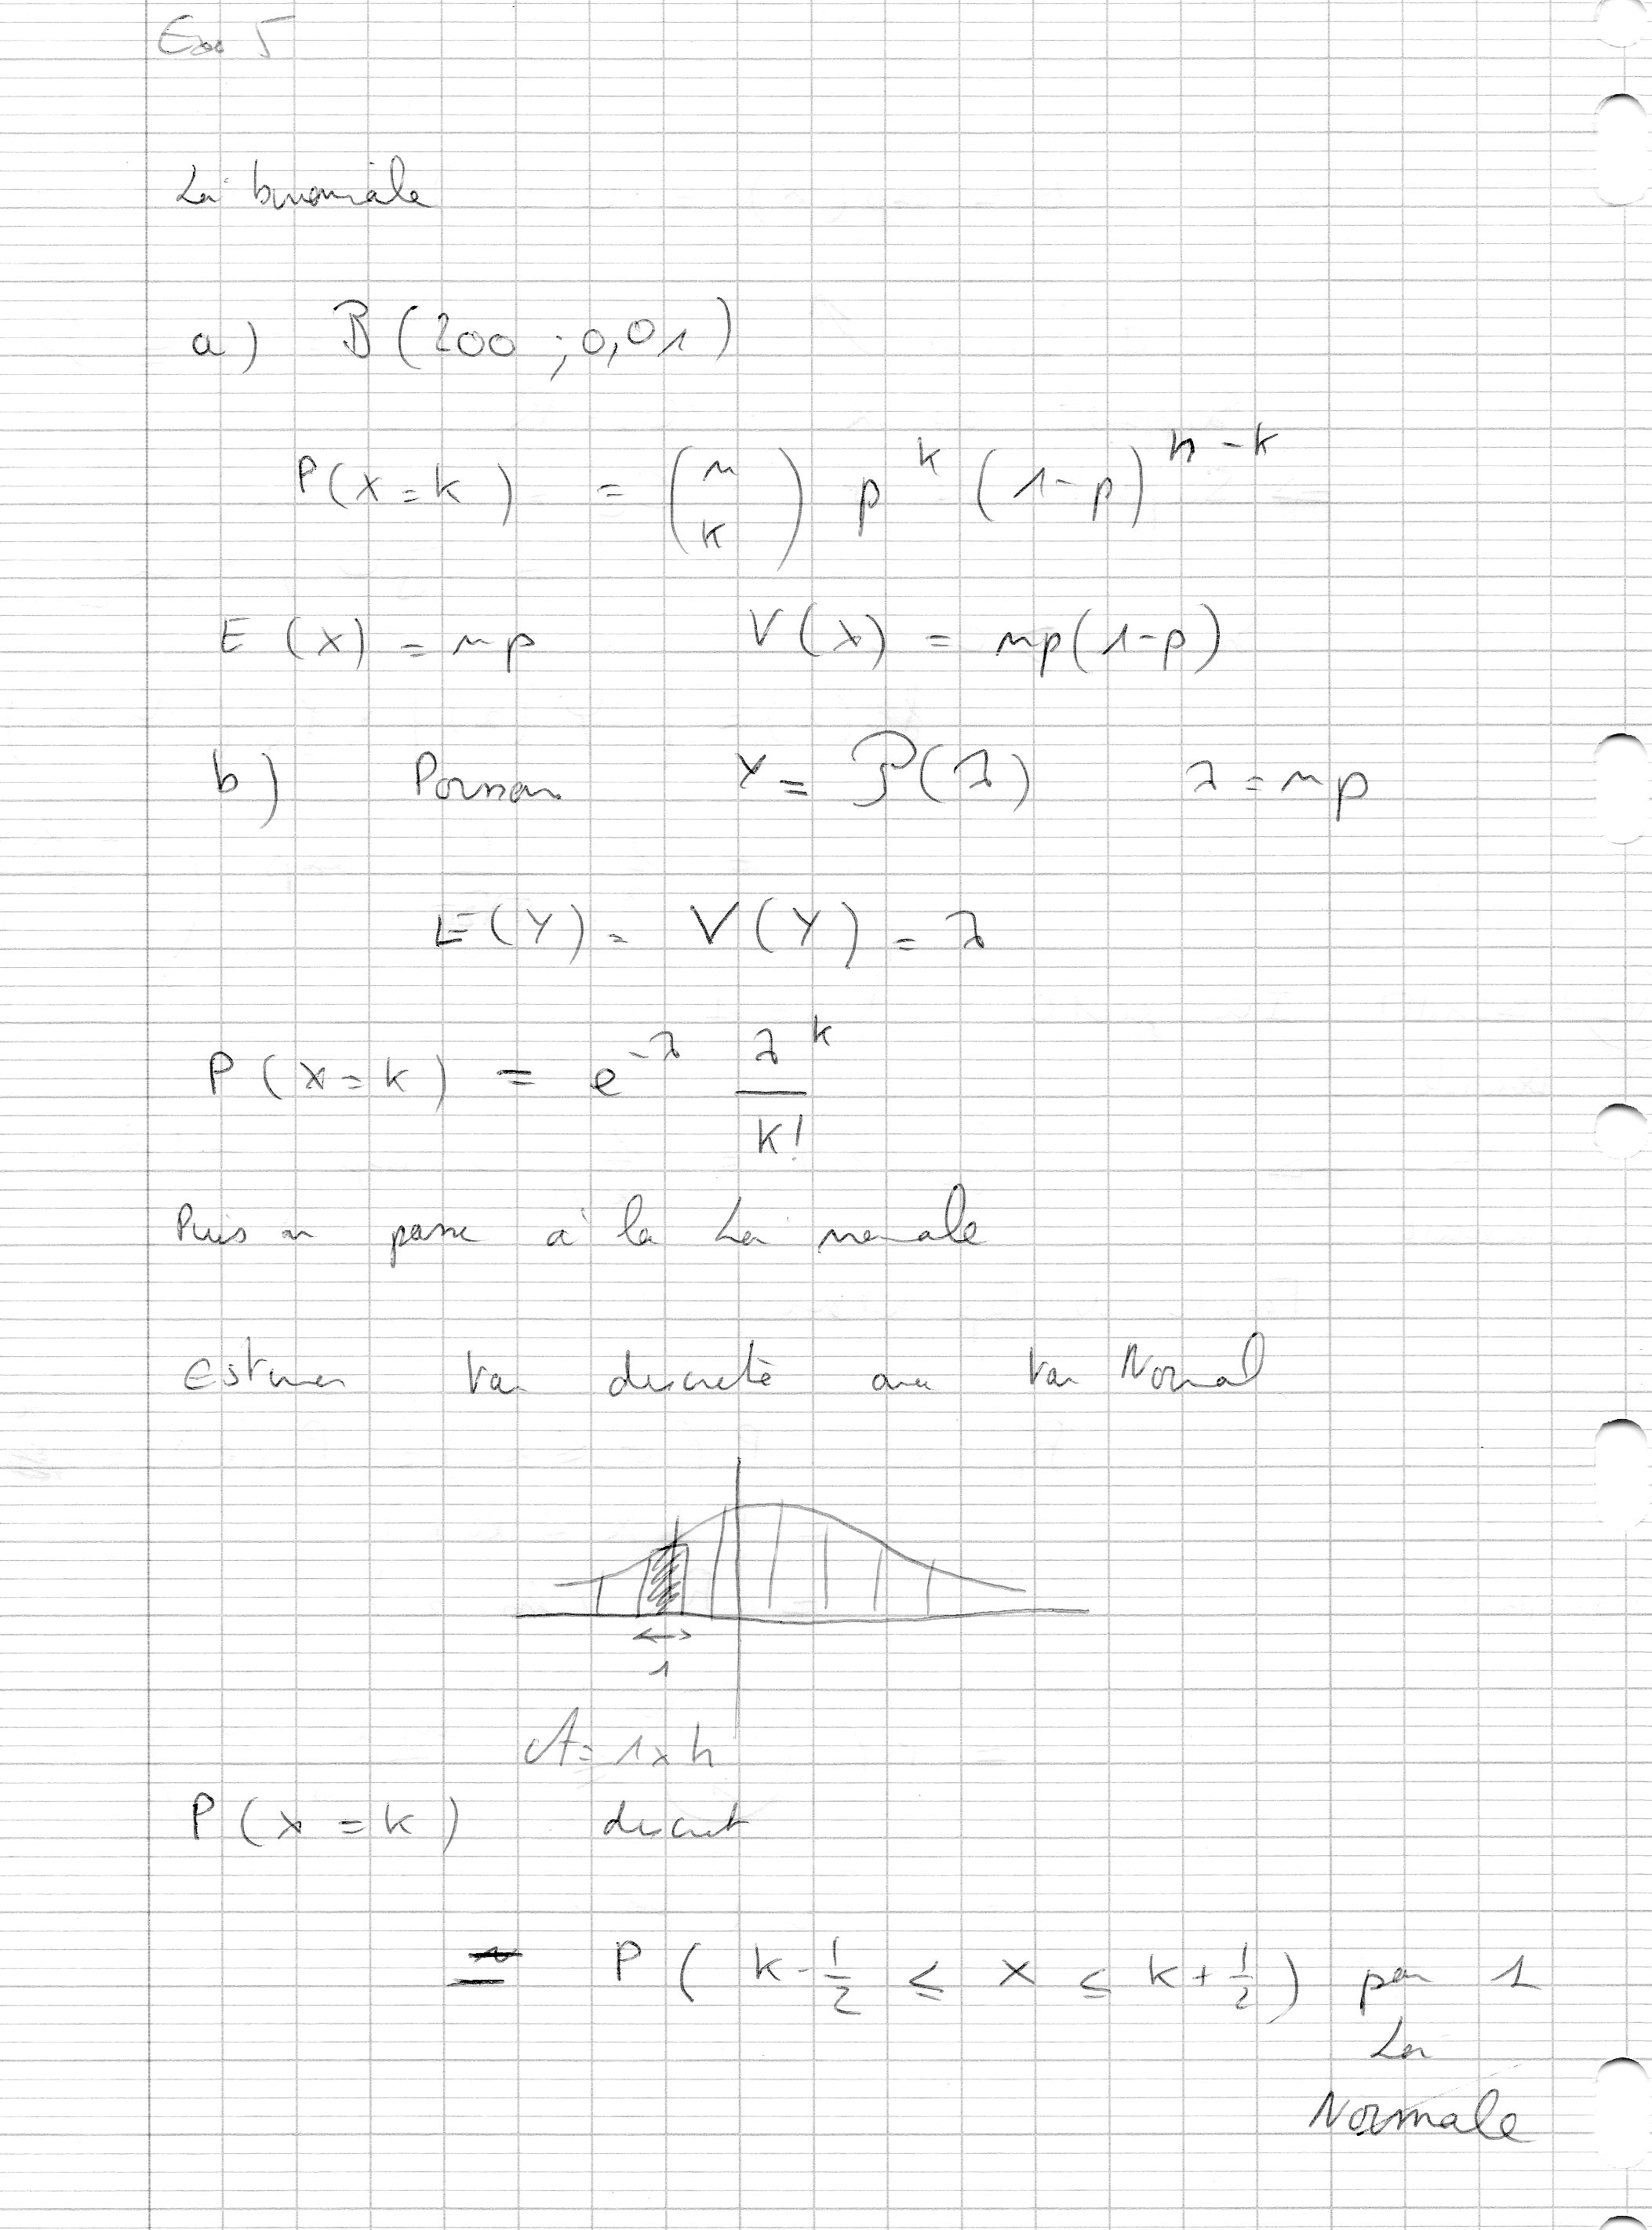 Exo 5
Loi binomiale
a) B(200 ; 0,01)
P(X=k) = (n k) p^k (1-p)^(n-k)
E(X) = np V(X) = np(1-p)
b) Poisson Y = P(λ) λ = np
E(Y) = V(Y) = λ
P(X=k) = e^-λ λ^k / k!
Puis on passe à la Loi normale
Estimer Var discrète avec Var Normal
1
A = 1×h
P(X=k) discret
≃ P(k-1/2 ≤ X ≤ k+1/2) par 1
Loi
Normale